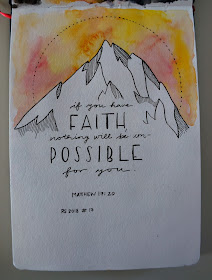 if you have
FAITH
nothing will be im-
POSSIBLE
for you.
MATTHEW 17:20